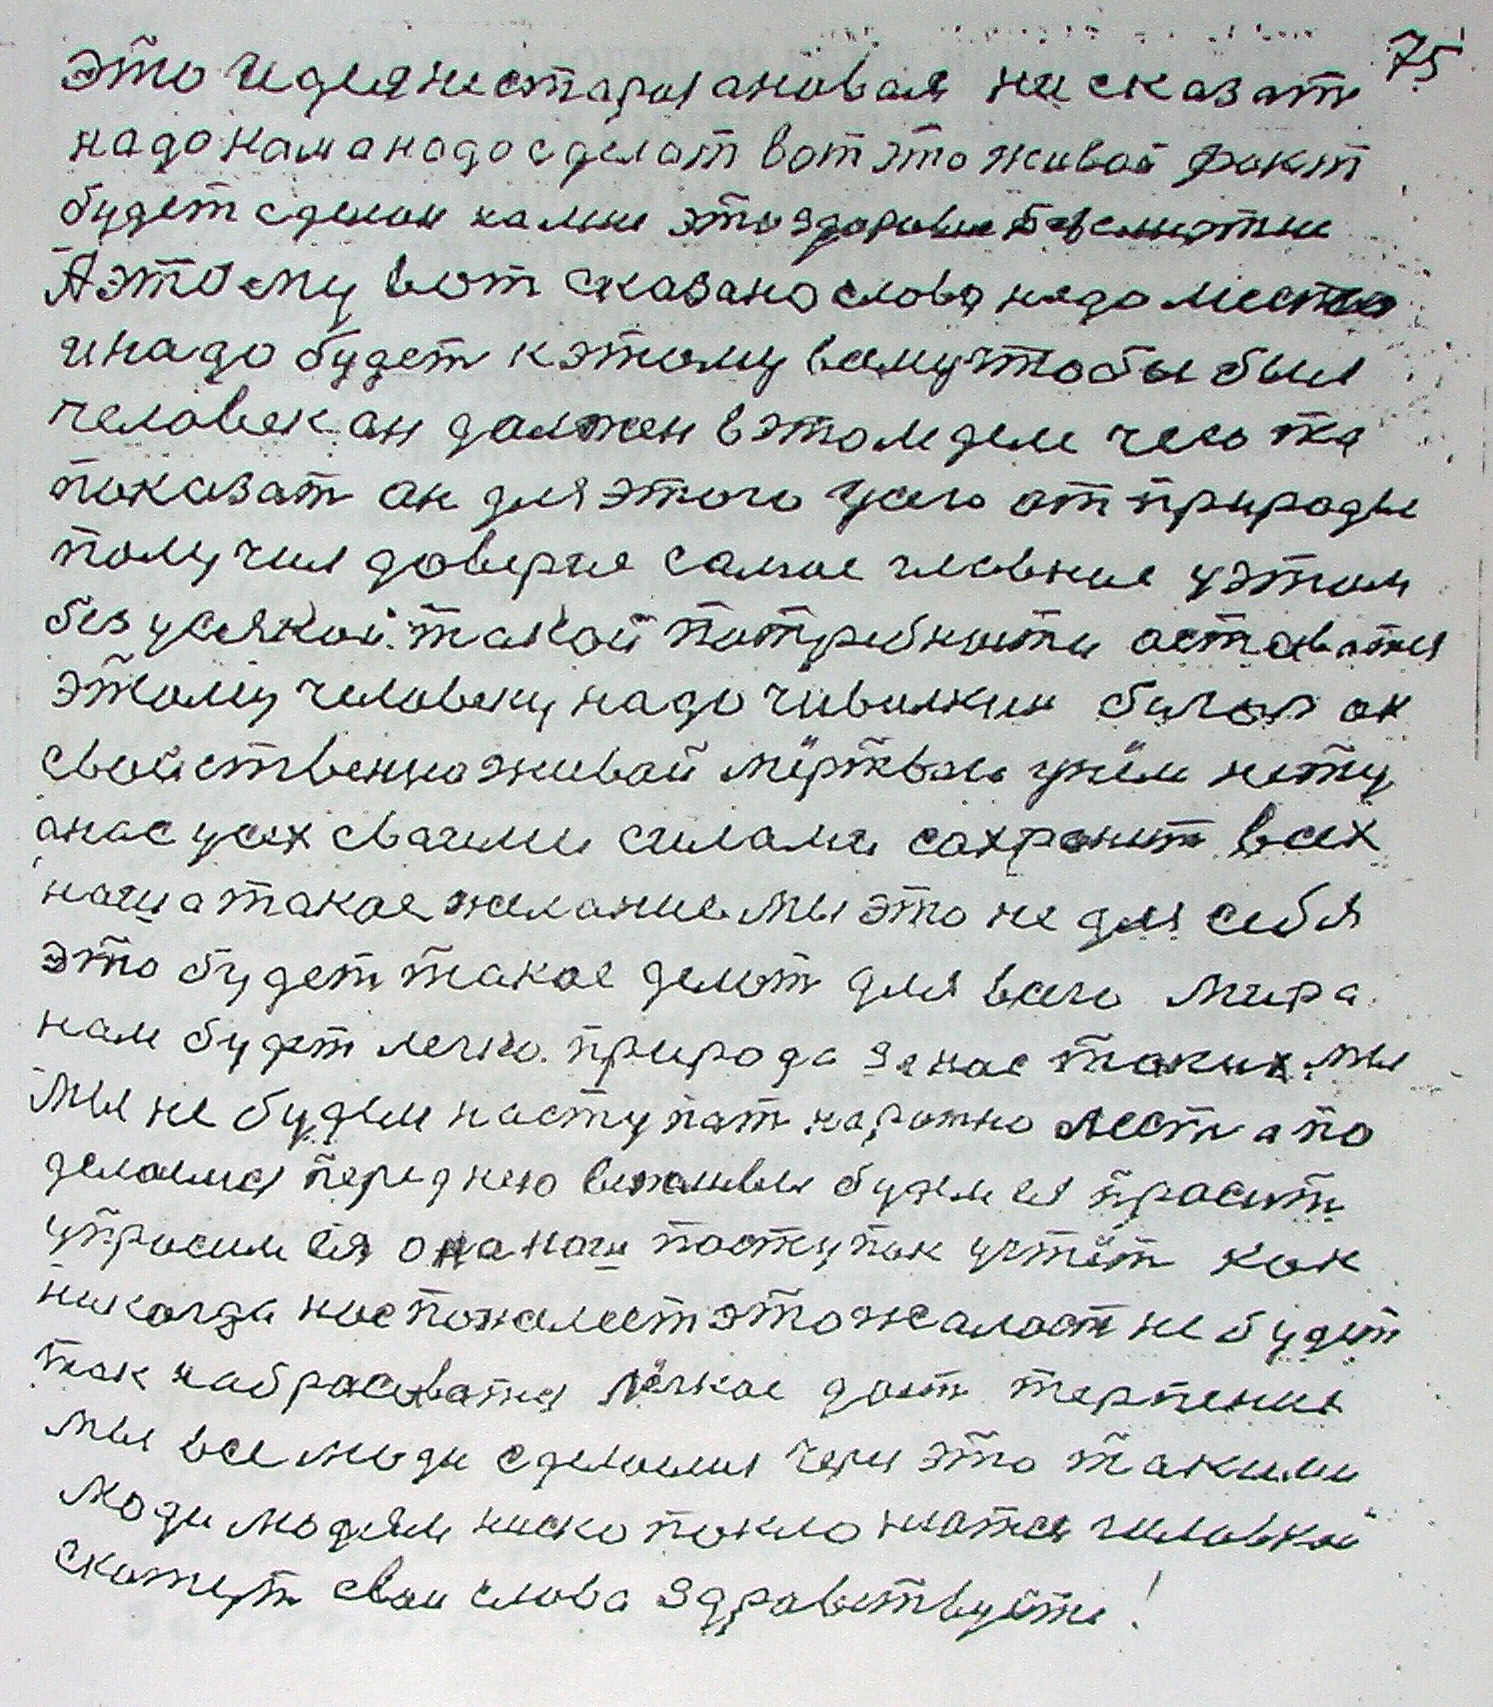 75
это идея не старая а новая не сказат
надо нам а надо сделат вот это живой факт
будет сделан нами это здоровие безсмертие
А этому вот сказано слово надо место
и надо будет к этому всему чтобы был
человек ан должен в этом деле чего та
показат ан для этого усего от природы
получил доверие самое главное у этом
без усякой такой потребности оставатся
этому человеку надо
свойственна живой мёртвого унём нету
а нас усех сваими силами сохранит всех
наша такое желание мы это не для себя
это будет такое делат для всего мира
нам будет легко природа за нас таких мы
мы не будем наступат на ратно лест а по
делаемся перед нею вежливы будем ея прасит
упросим ея она наш поступок учтёт как
никогда нас пожалеет это жалост не будет
так набрасыватся лёгкое даст терпение
мы все люди сделаемся через это такими
люди людям ниско поклонятся головкой
скажут сваи слова здравствуйте!